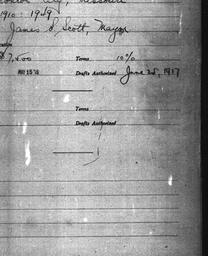 City, Missouri
1910 - 1919
James S. Scott, Mayor
$7,500 Terms 10%
MAY 15 '18 Drafts Authorized June 25, 1917
Terms
Drafts Authorized